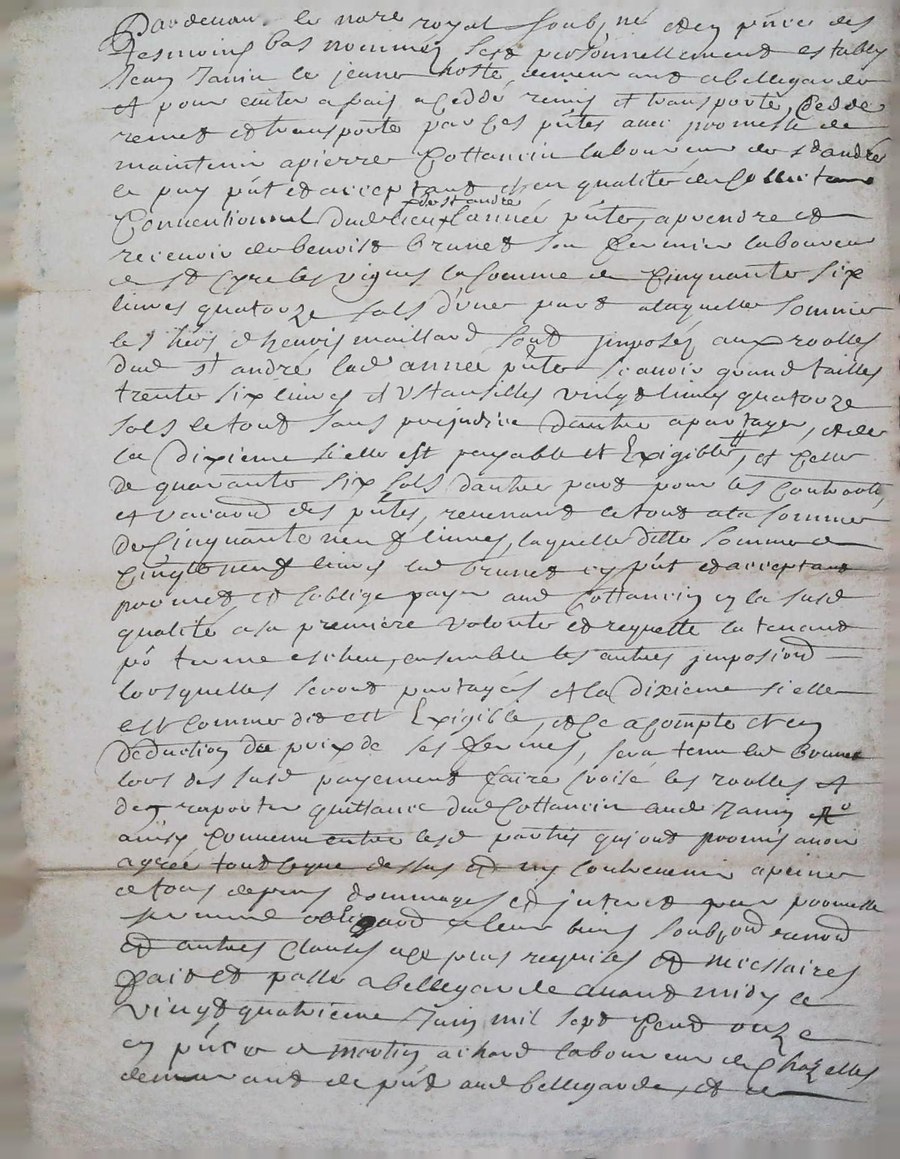 Pardevant le notre royal soubzné et en pnce des
tesmoins bas nommez sest personnellement estably
Jean Janin le jeune hoste demeurant a bellegarde
et pour cause a fait, a ceddé remis et transporté, cedde
remet et transporte par ces pntes avec promesse de
maintenir a pierre Cottancin laboureur de st andré
le puy pnt et acceptant et en qualité de Collecteur
Conventionnel dud lieu de st andré lannée pnte, a prendre et
recevoir de benoist brunet son fermier laboureur
de st Cyre les vignes la somme de Cinquante six
livres quatorze sols d'une part a laquelle somme
les hers et henris maillard sont jmposéz aux roolles
dud st andré lad année pnte scavoir quand tailles
trente six livres et ustansilles vingt livres quatorze
sols le tout sans prejudice dautre a partager, et de
la dixieme si elle est payable et Exigible, et celle
de quarante six sols dautre part pour les Controole
et des pntes, revenant le tout a la somme
de Cinquante neuf livres, laquelle ditte somme de
Cinqte neuf livres led brunet cy pnt et acceptant
promet et soblige payer aud Cottancin en la susd
qualité a sa premiere volonté et requette la tenant
po terme escheu, ensemble les autres jmposions
lorsquelles seront partagés et la dixieme si elle
est comme dit est Exigible, et ce a compte et en
deduction du prix de ses fermes, sera tenu led Brunet
lors des susd payement faire croisé les roolles et
de raporter quittance dud Cottancin aud Janin
ainsy convenu entre lesd parties qui ont promis avoir
agréé tout ce que dessus et ny contrevenir a peine
de tous depens dommages et jnterest par promesse
serment obligaon de leur biens soubzon renon
et autres clauses a ce plus requises et necessaires
fait et passé a bellegarde avant midy le
vingt quatrieme Janv mil sept cent onze
en pnce de Martin achard laboureur de Chazelles
demeurant de pnt aud bellegarde, et de